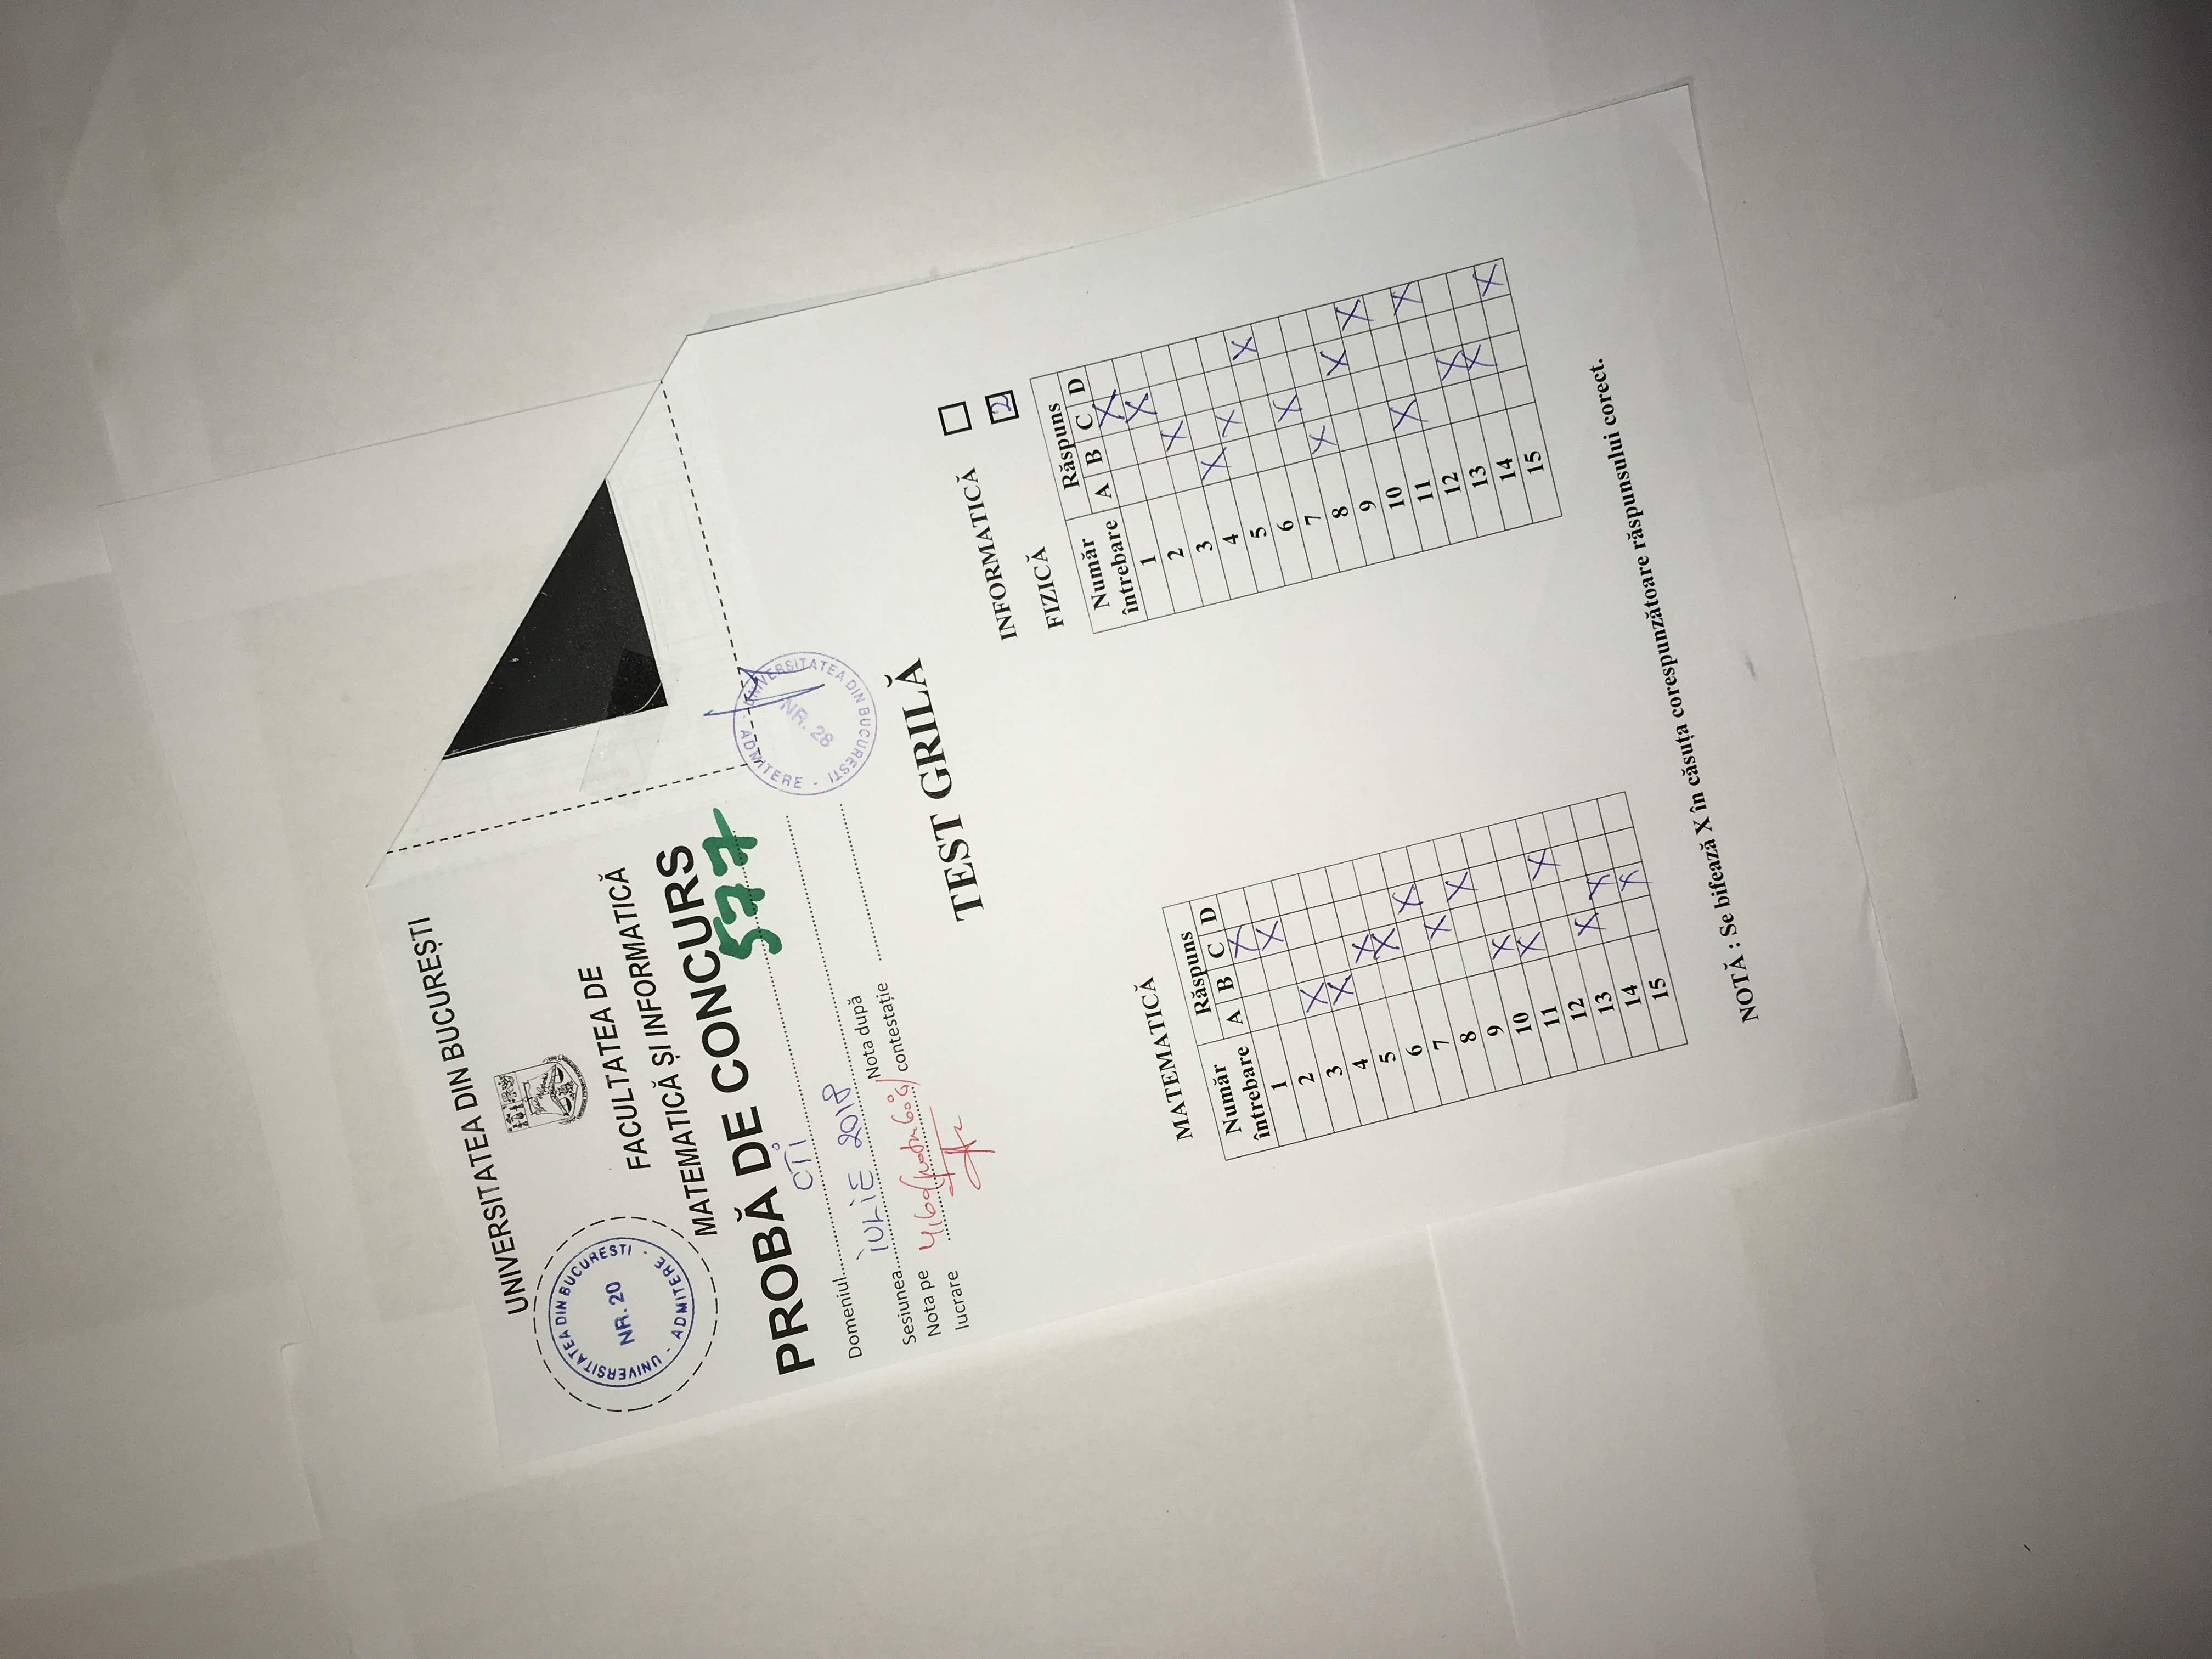 UNIVERSITATEA DIN BUCUREȘTI
UNIVERSITATEA DIN BUCURESTI - ADMITERE -
NR. 20
FACULTATEA DE
MATEMATICĂ ȘI INFORMATICĂ
PROBĂ DE CONCURS
577
Domeniul CTI
Sesiunea IULIE 2018
Nota pe lucrare 4,60
Nota după contestație
UNIVERSITATEA DIN BUCURESTI - ADMITERE -
NR. 28
TEST GRILĂ
INFORMATICĂ
FIZICĂ 2
MATEMATICĂ
Număr întrebare Răspuns
A B C D
1 X
2 X
3 X
4 X
5 X
6 X
7 X
8 X
9 X
10 X
11 X
12 X
13 X
14 X
15 X
Număr întrebare Răspuns
A B C D
1 X
2 X
3 X
4 X
5 X
6 X
7 X
8 X
9 X
10 X
11 X
12 X
13 X
14 X
15 X
NOTĂ : Se bifează X în căsuța corespunzătoare răspunsului corect.